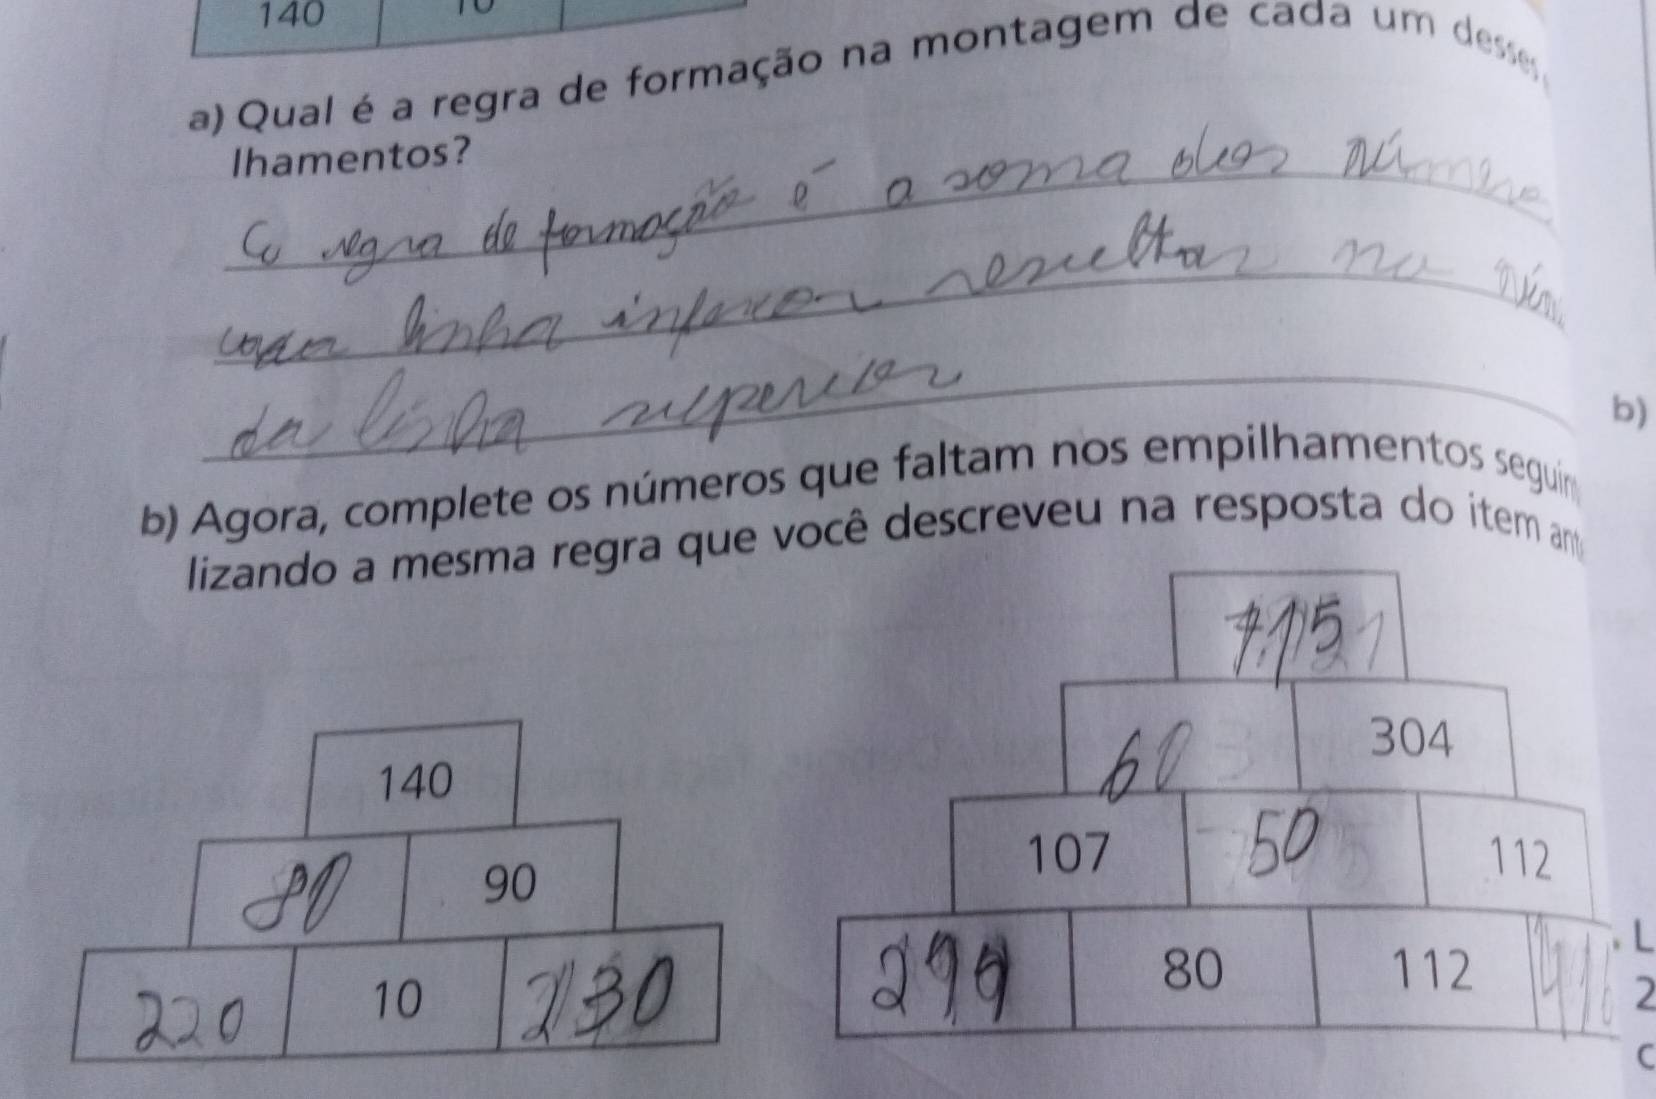 140 10
a) Qual é a regra de formação na montagem de cada um desses
lhamentos?
regra de formação é a soma dos número
linha inferior resultar no
da linha superior
b)
b) Agora, complete os números que faltam nos empilhamentos seguin
lizando a mesma regra que você descreveu na resposta do item ant
140
90
220 10
304
60
107 50 112
299 80 112
L
2
C